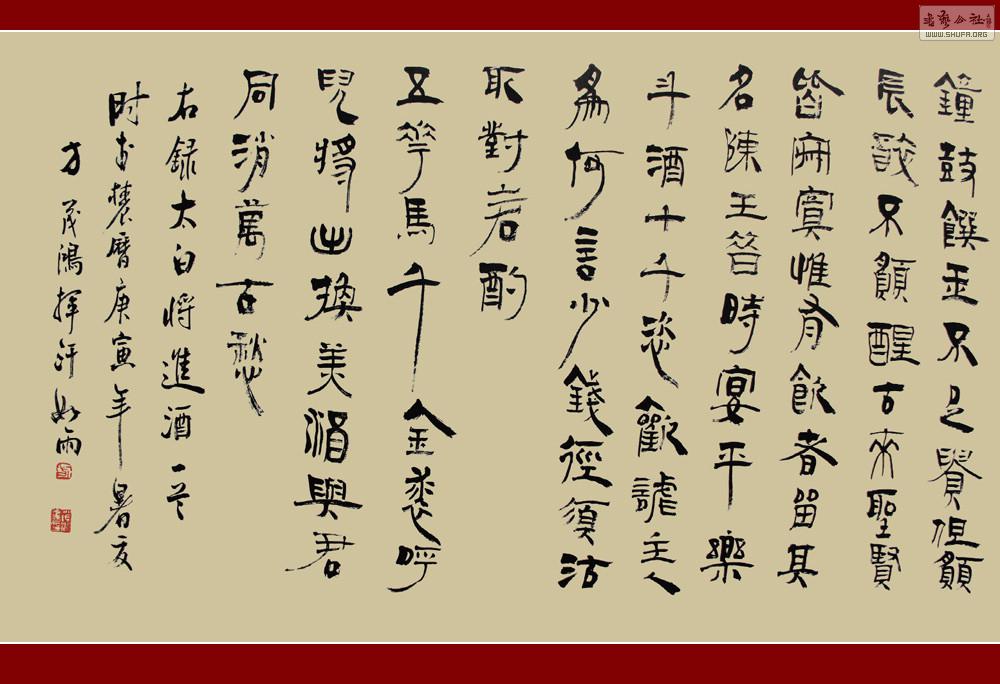 鐘鼓饌玉不足貴但願
長醉不願醒古來聖賢
皆寂寞惟有飲者留其
名陳王昔時宴平樂
斗酒十千恣歡謔主人
為何言少錢徑須沽
取對君酌
五花馬千金裘呼
兒將出換美酒與君
同消萬古愁
右録太白将進酒一首
时農曆庚寅年暑
方茂鴻揮汗如雨
书艺公社
WWW.SHUFA.ORG